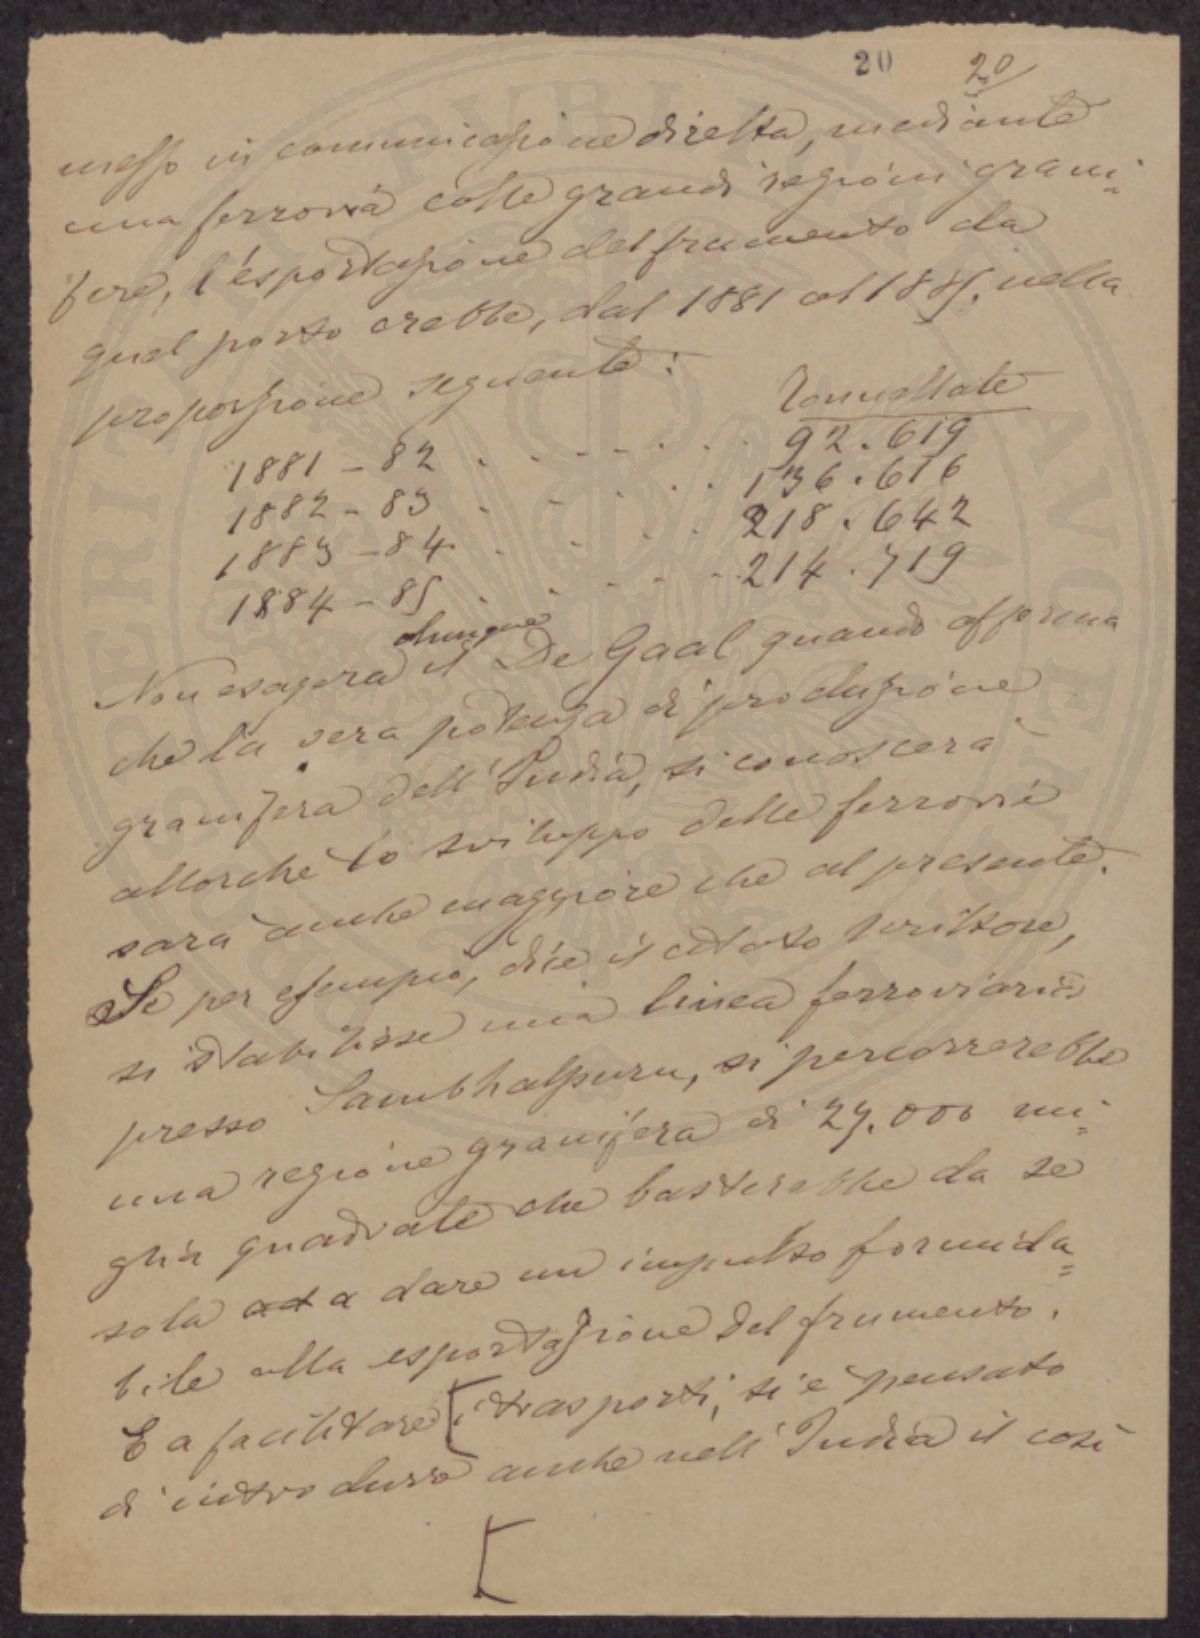 20 20
messo in comunicazione diretta, mediante
una ferrovia colle grandi regioni grani=
fere, l'esportazione del frumento da
quel porto crebbe, dal 1881 al 1885, nella
proporzione seguente:
Tonnellate
1881-82 . . . . . . . 92.619
1882-83 . . . . . 136.616
1883-84 . . . . . 218.642
1884-85 . . . . . 214.719
dunque
Non esagera il De Gaal quando afferma
che la vera potenza di produzione
granifera dell'India, si conoscerà
allorchè lo sviluppo delle ferrovie
sarà anche maggiore che al presente.
Se per esempio, dice il citato scrittore,
si stabilisse una linea ferroviaria
presso Sambhalpuru, si percorrerebbe
una regione granifera di 27.000 mi=
glia quadrate che basterebbe da se
sola ad a dare un impulso formida=
bile alla esportazione del frumento.
E a facilitare [i trasporti, si è pensato
di introdurre anche nell'India il così
[